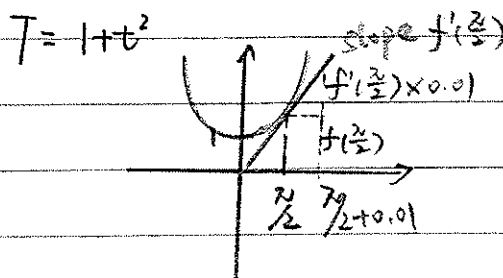 T = 1+t²
slope f'(π/2)
f'(π/2)×0.01
f(π/2)
1
π/2 π/2+0.01